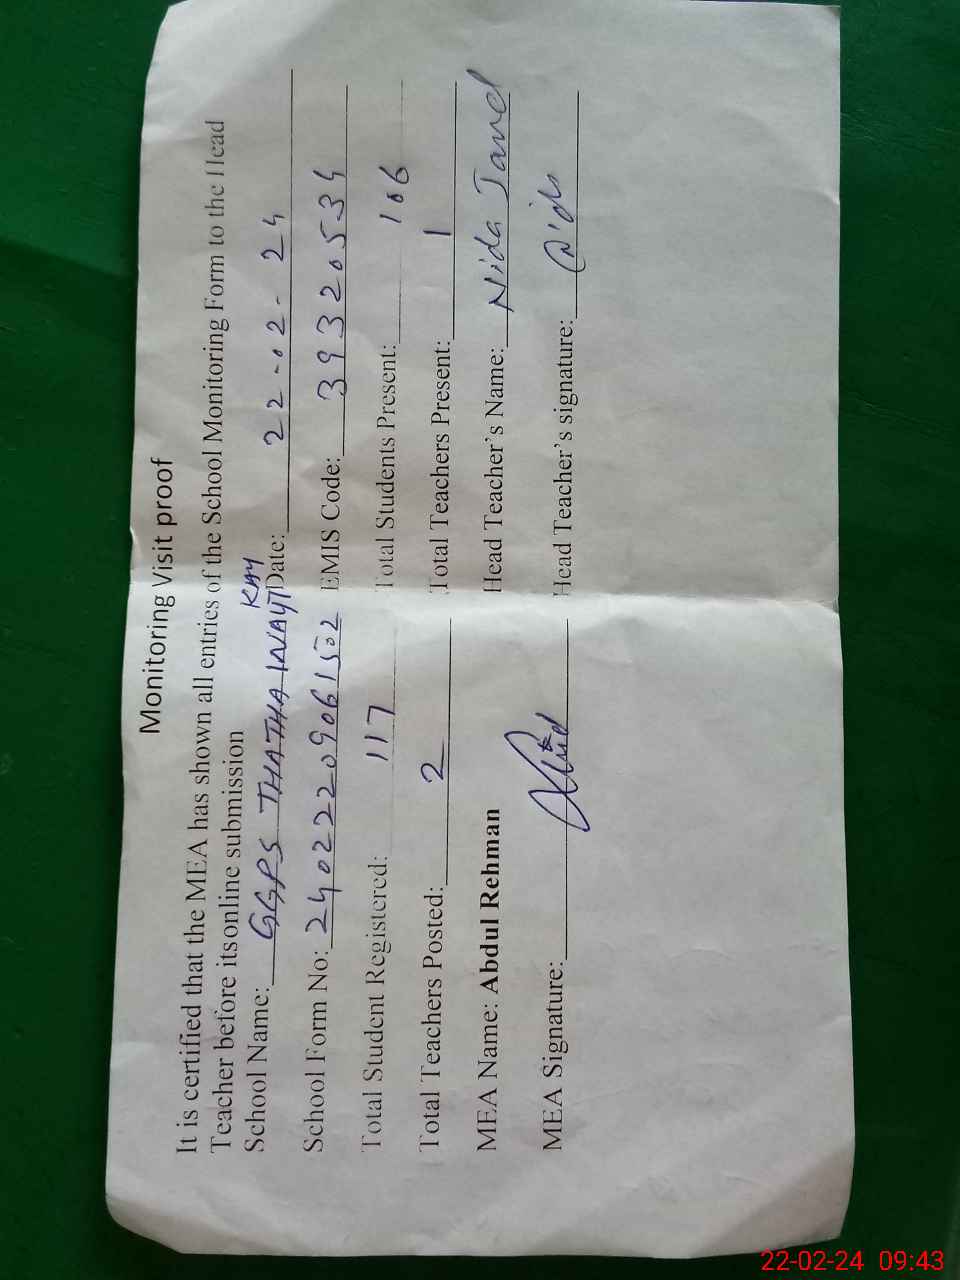 Monitoring Visit proof
It is certified that the MEA has shown all entries of the School Monitoring Form to the Head
Teacher before itsonline submission
School Name: GGPS THATHA INAYT KAY Date: 22-02-24
School Form No: 24022209061502 EMIS Code: 39320534
Total Student Registered: 117 Total Students Present: 106
Total Teachers Posted: 2 Total Teachers Present: 1
MEA Name: Abdul Rehman Head Teacher's Name: Nida Javed
MEA Signature: Head Teacher's signature: Nida
22-02-24 09:43